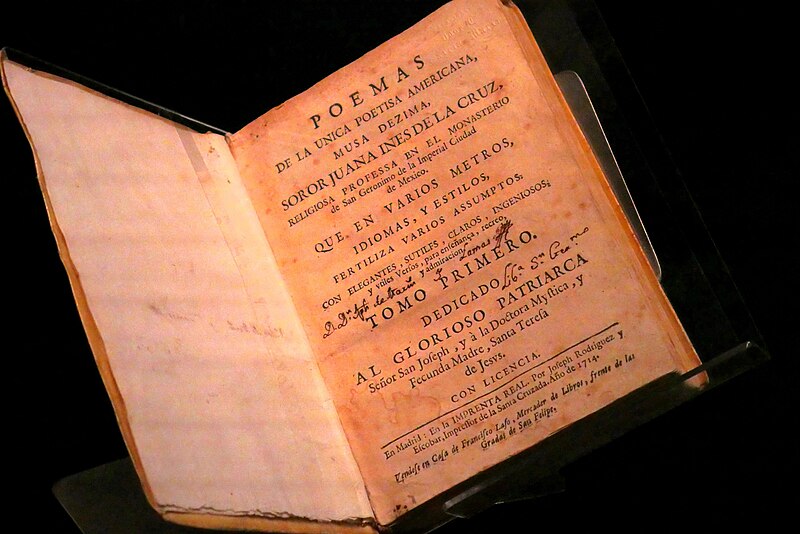 POEMAS
DE LA UNICA POETISA AMERICANA,
MUSA DEZIMA,
SOROR JUANA INES DE LA CRUZ,
RELIGIOSA PROFESSA EN EL MONASTERIO
de San Geronimo de la Imperial Ciudad
de Mexico.
QUE EN VARIOS METROS,
IDIOMAS, Y ESTILOS,
FERTILIZA VARIOS ASSUMPTOS:
CON ELEGANTES, SUTILES, CLAROS, INGENIOSOS;
y vtiles Versos, para enseñança, recreo,
y admiracion
TOMO PRIMERO.
DEDICADO
AL GLORIOSO PATRIARCA
Señor San Joseph, y à la Doctora Mystica, y
Fecunda Madre, Santa Teresa
de Jesvs.
CON LICENCIA.
En Madrid: En la IMPRENTA REAL. Por Joseph Rodriguez y
Escobar, Impressor de la Santa Cruzada. Año de 1714.
Vendese en Casa de Francisco Laso, Mercader de Libros, frente de las
Gradas de San Felipe.